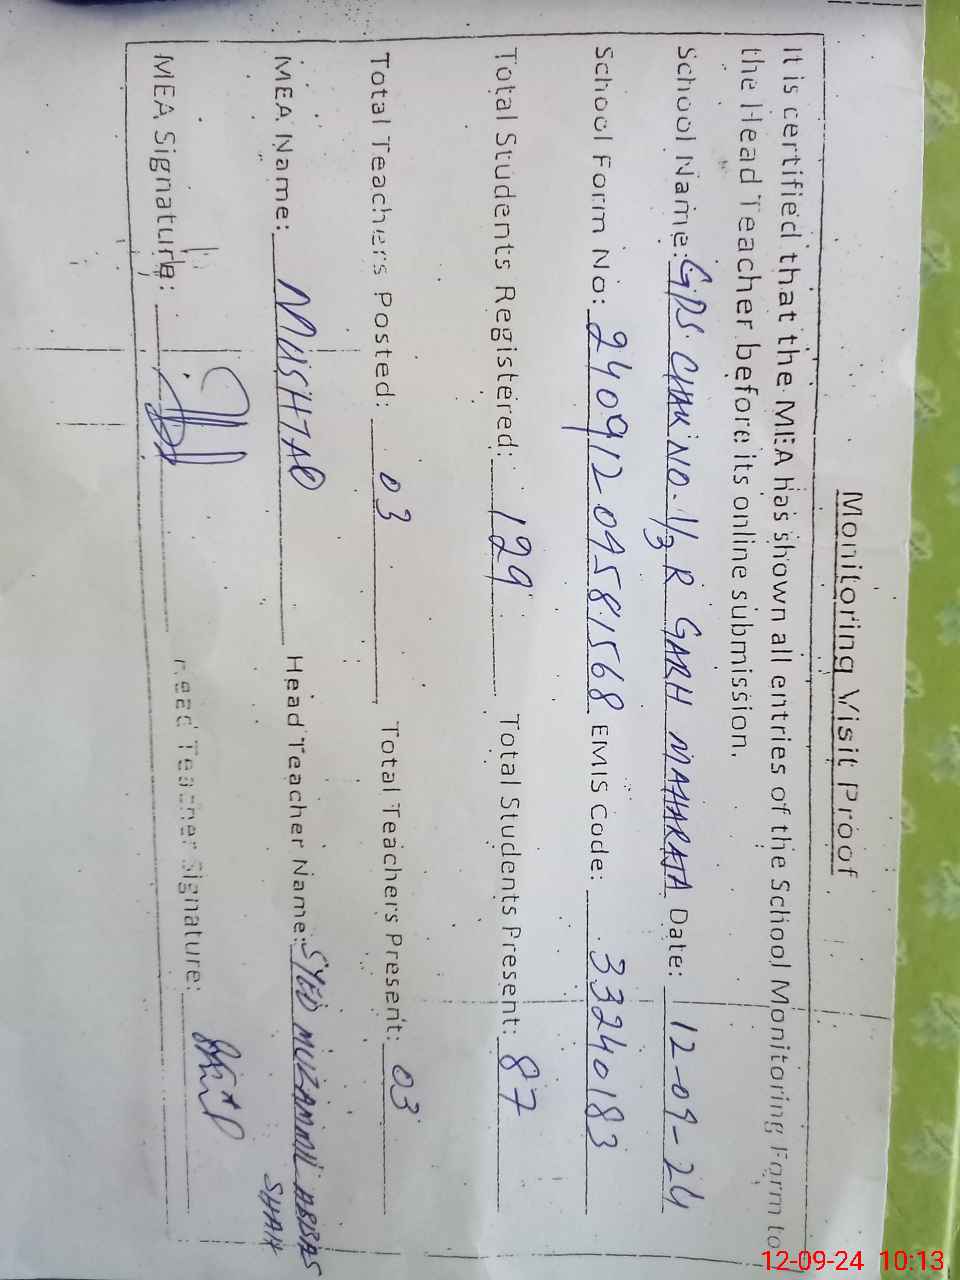 Monitoring Visit Proof
It is certified that the MEA has shown all entries of the School Monitoring Form to
the Head Teacher before its online submission.
School Name: GPS CHAK NO. 1/3 R GARH MAHARAJA Date: 12-09-24
School Form No: 240912094581568 EMIS Code: 33240183
Total Students Registered: 129 Total Students Present: 87
Total Teachers Posted: 03 Total Teachers Present: 03
MEA Name: MUSHTAQ Head Teacher Name: SYED MUZAMMIL ABBAS
SHAH
MEA Signature: Head Teacher Signature:
12-09-24 10:13